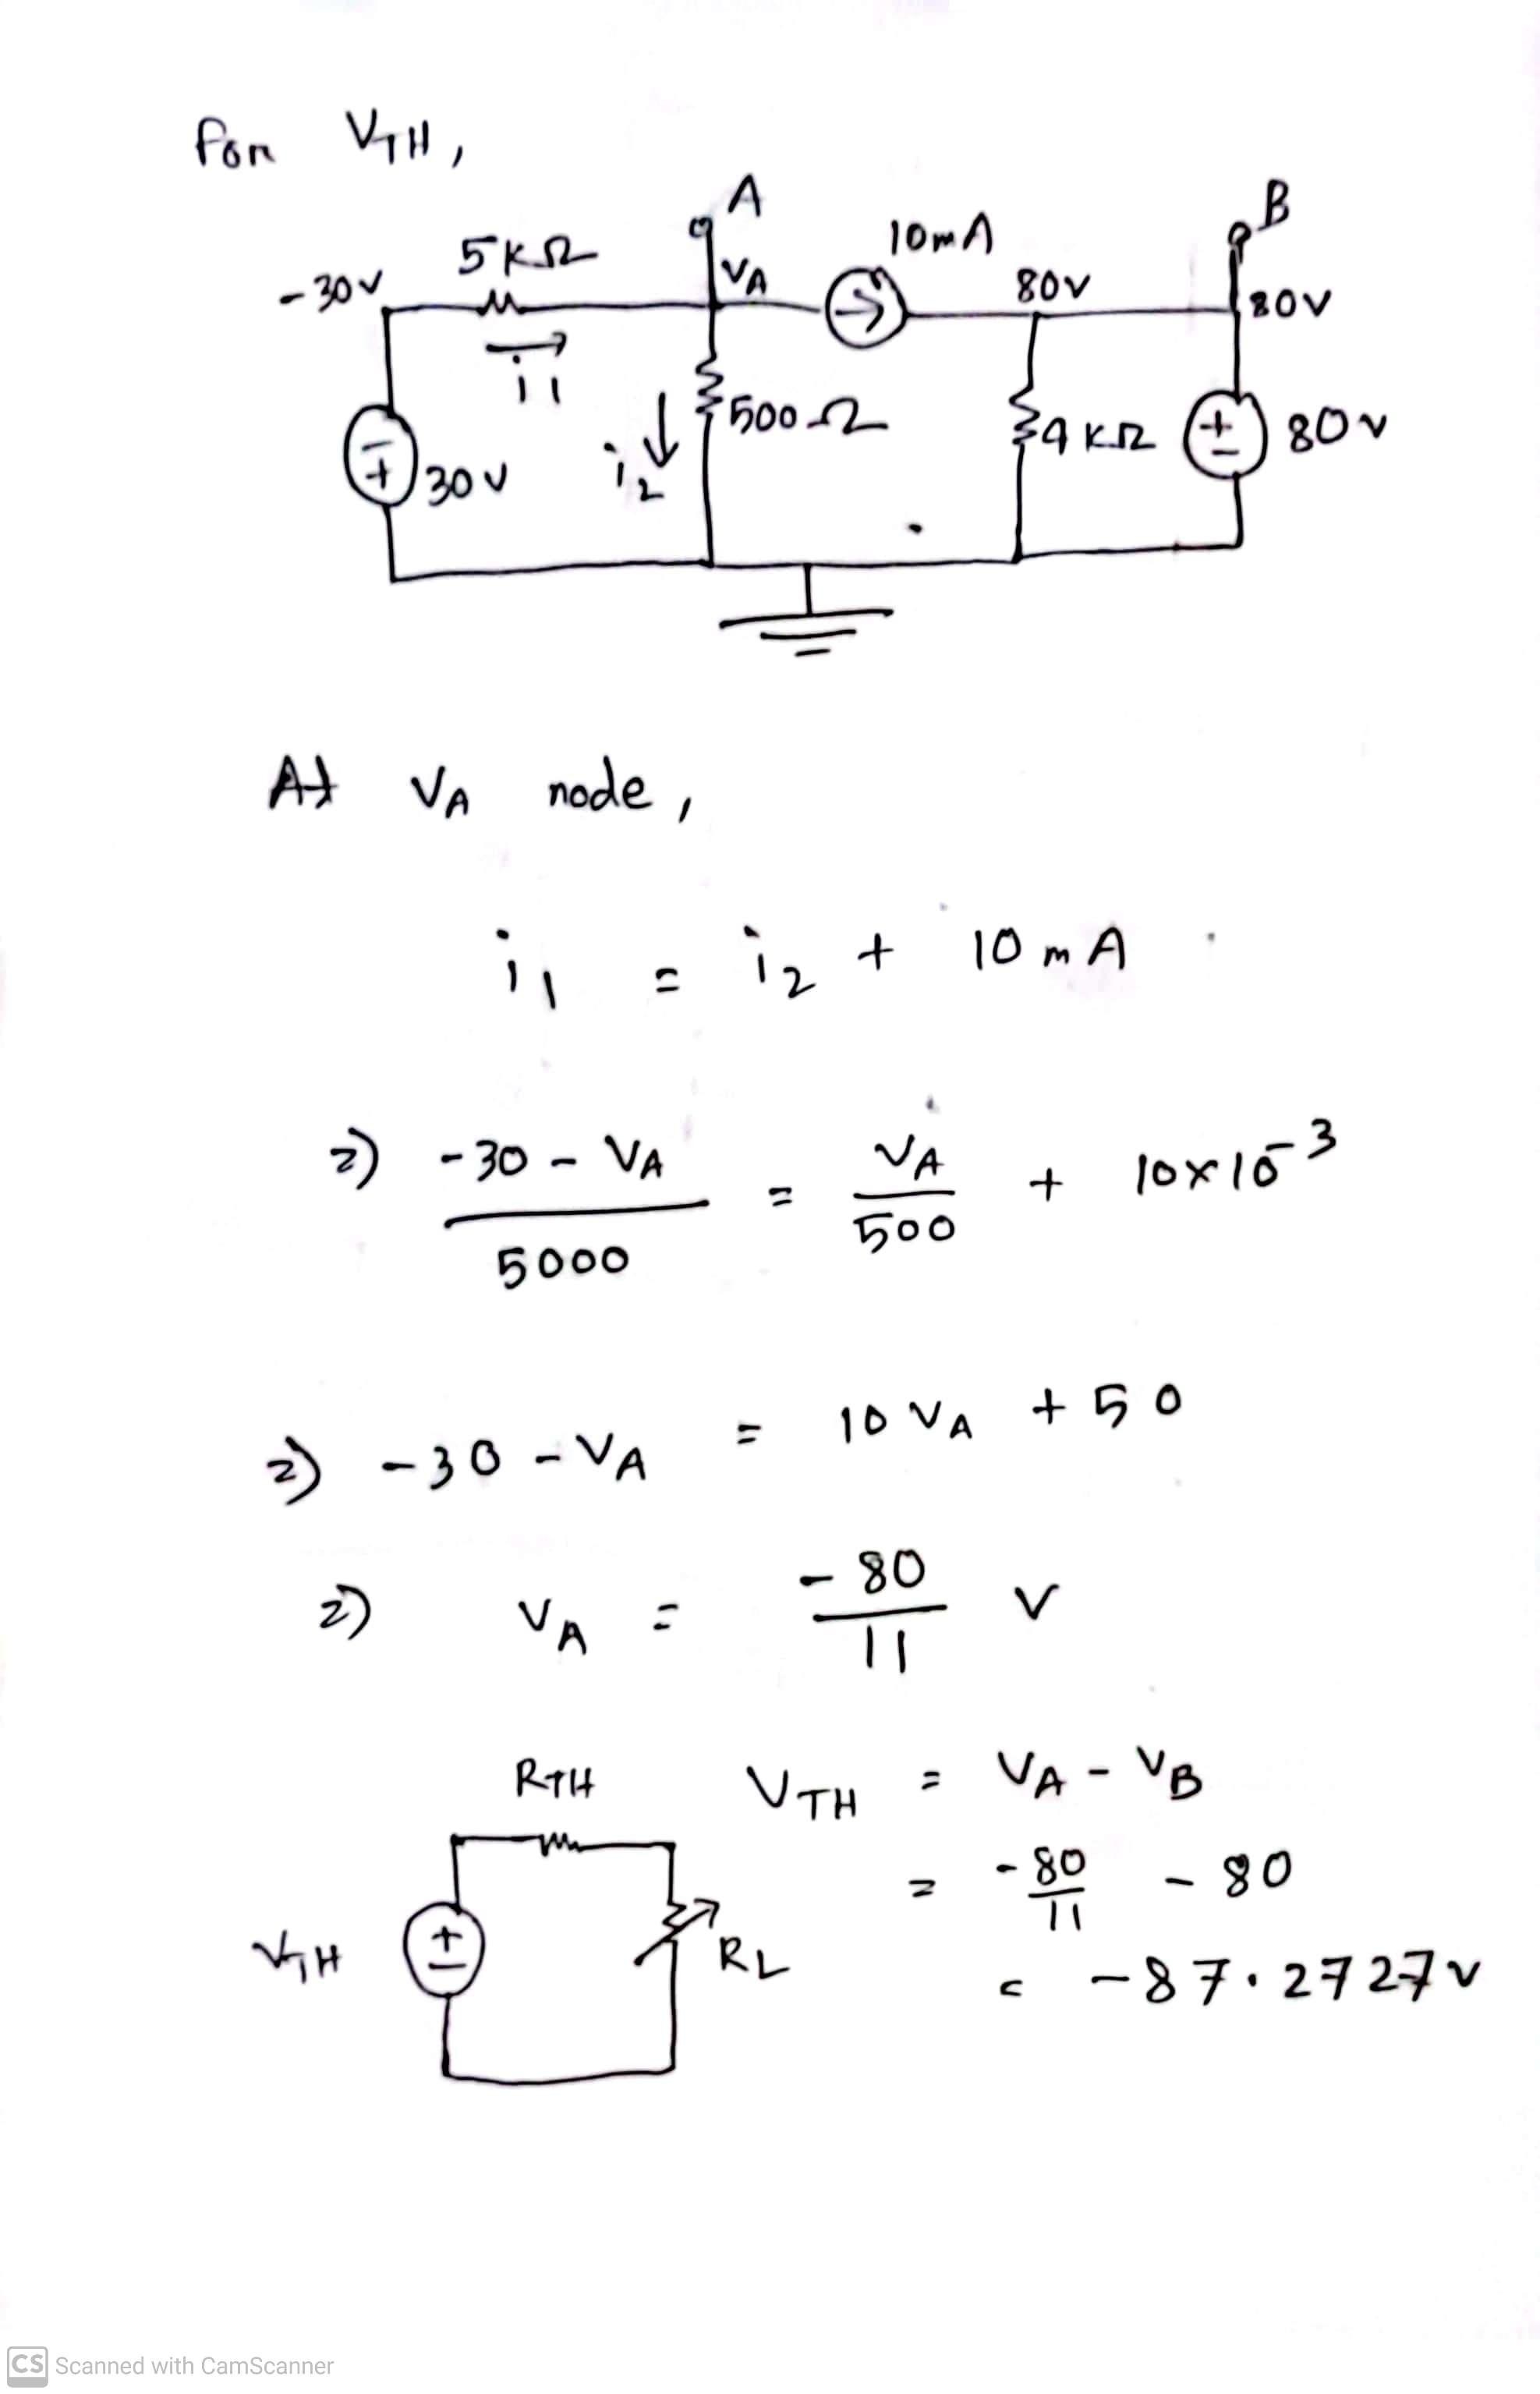 For VTH,
A
B
5KΩ
10mA
-30v
VA
80v
80v
i1
500Ω
4KΩ
80v
30v
i2
At VA node,
i1 = i2 + 10 mA
⇒ -30 - VA / 5000 = VA / 500 + 10×10^-3
⇒ -30 - VA = 10 VA + 50
⇒ VA = -80/11 V
RTH
VTH = VA - VB
= -80/11 - 80
VTH
RL
= -87.2727v
CS Scanned with CamScanner